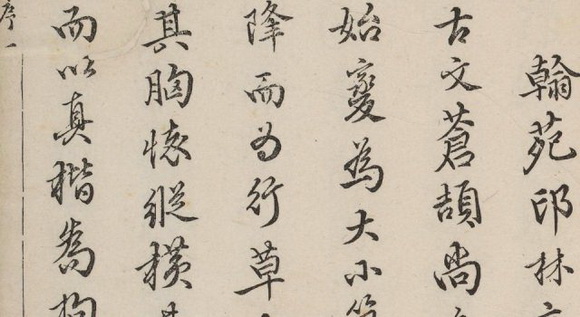 翰苑印林
古文蒼頡尚
始變為大小
降而為行草
其胸懷縱橫
而以真楷為拘
序一